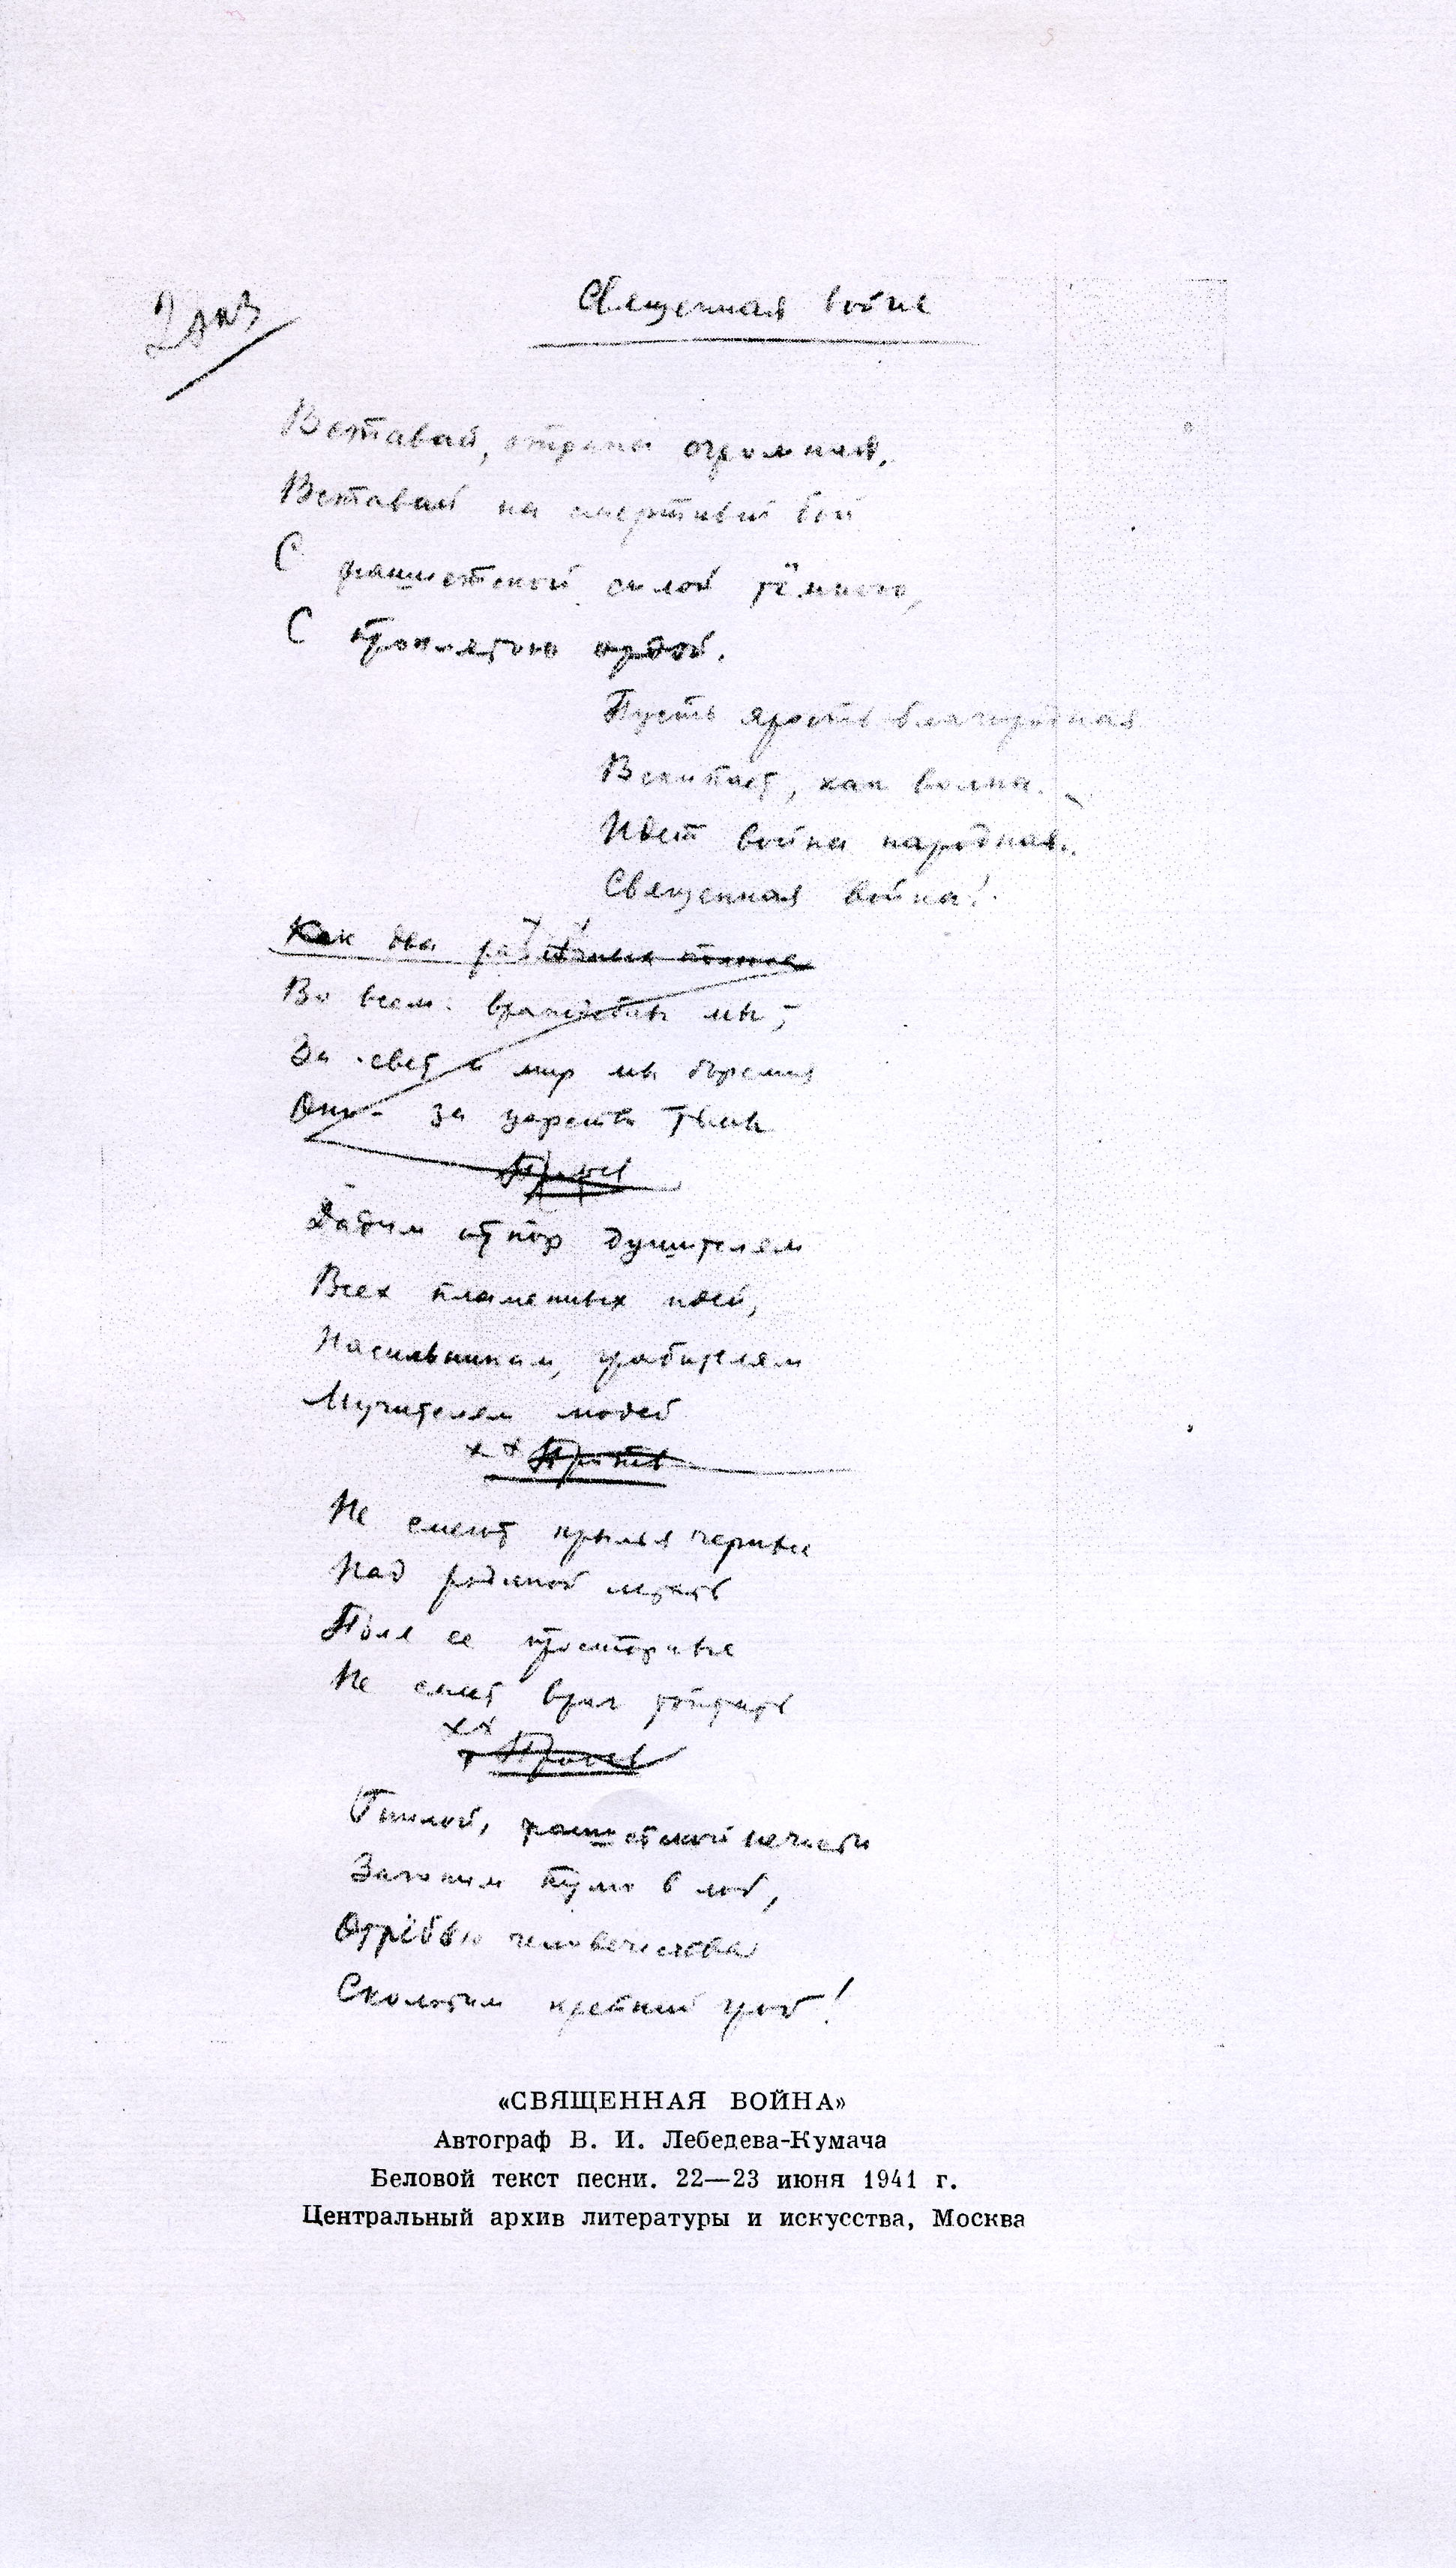 2 экз
Священная война
Вставай, страна огромная,
Вставай на смертный бой
С фашистской силой тёмною,
С проклятою ордой.
Пусть ярость благородная
Вскипает, как волна.
Идет война народная,
Священная война!
Как два различных полюса
Во всем враждебны мы;
За свет и мир мы боремся
Они - за царство тьмы
Припев
Дадим отпор душителям
Всех пламенных идей,
Насильникам, грабителям
Мучителям людей
х х Припев
Не смеют крылья черные
Над родиной летать
Поля ее просторные
Не смеет враг топтать
х х
Припев
Гнилой, фашистской нечисти
Загоним пулю в лоб,
Отрёбью человечества
Сколотим крепкий гроб!
«СВЯЩЕННАЯ ВОЙНА»
Автограф В. И. Лебедева-Кумача
Беловой текст песни. 22—23 июня 1941 г.
Центральный архив литературы и искусства, Москва